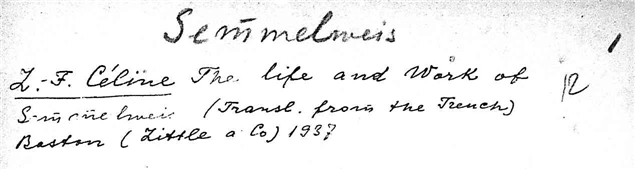 Semmelweis
L.-F. Céline The life and Work of
Semmelweis (Transl. from the French)
Boston (Little a Co) 1937